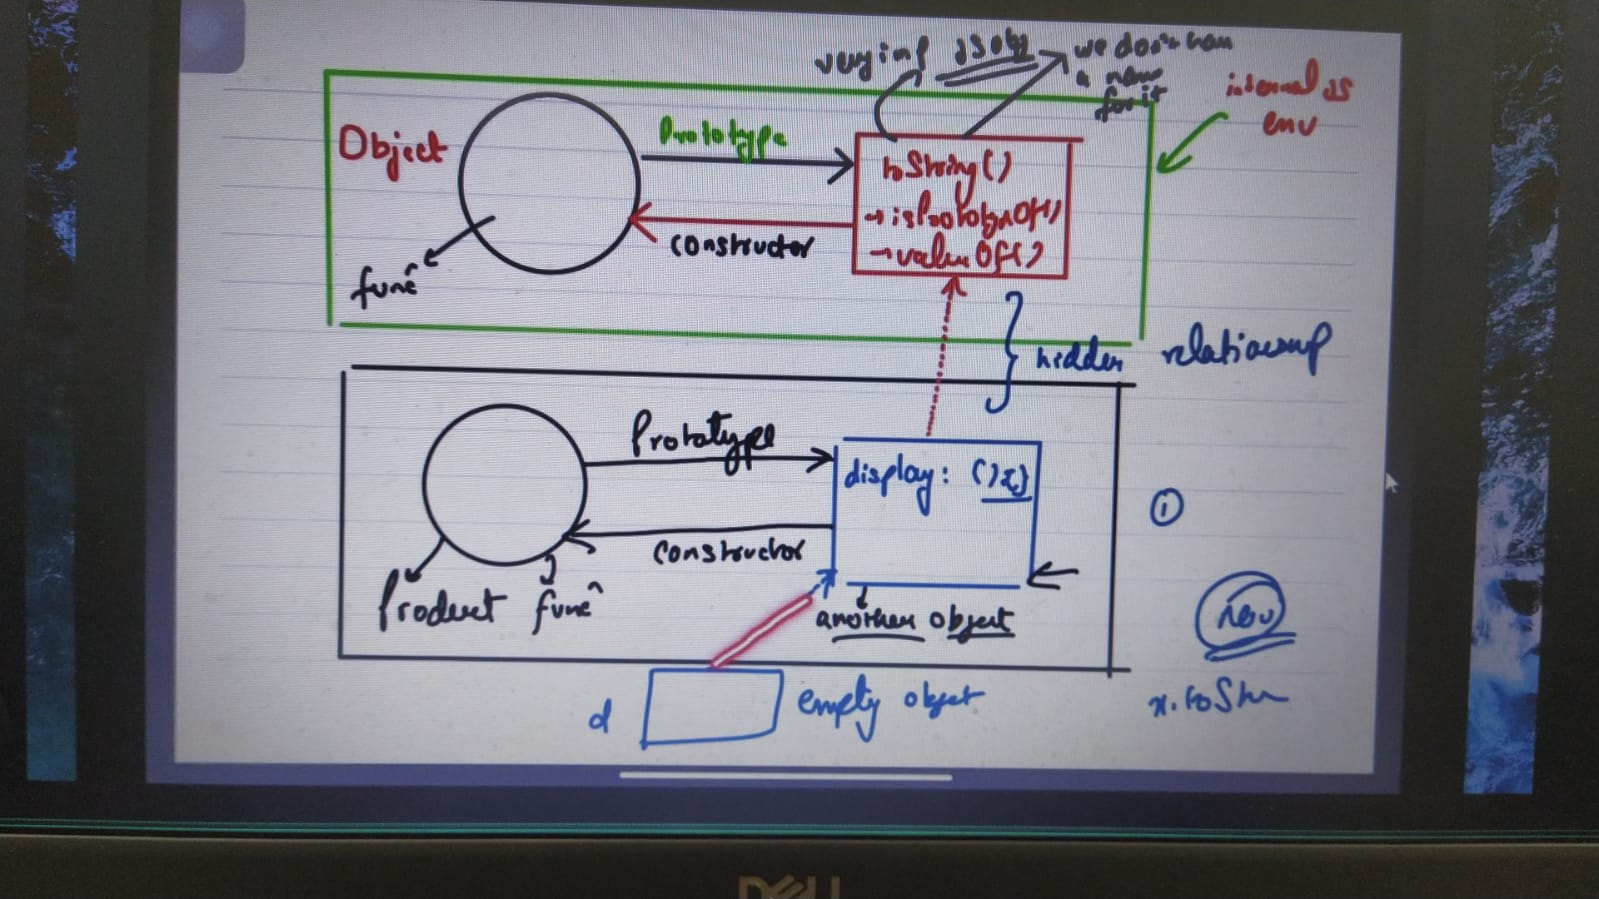 very imp JS obj → we don't have
a name
for it
internal JS
env
Object
Prototype
toString()
→ isPrototypeOf()
→ valueOf()
constructor
func^n
hidden relationship
Prototype
display: (){}
constructor
①
Product func^n
another object
new
d
empty object
x.toStr
DELL